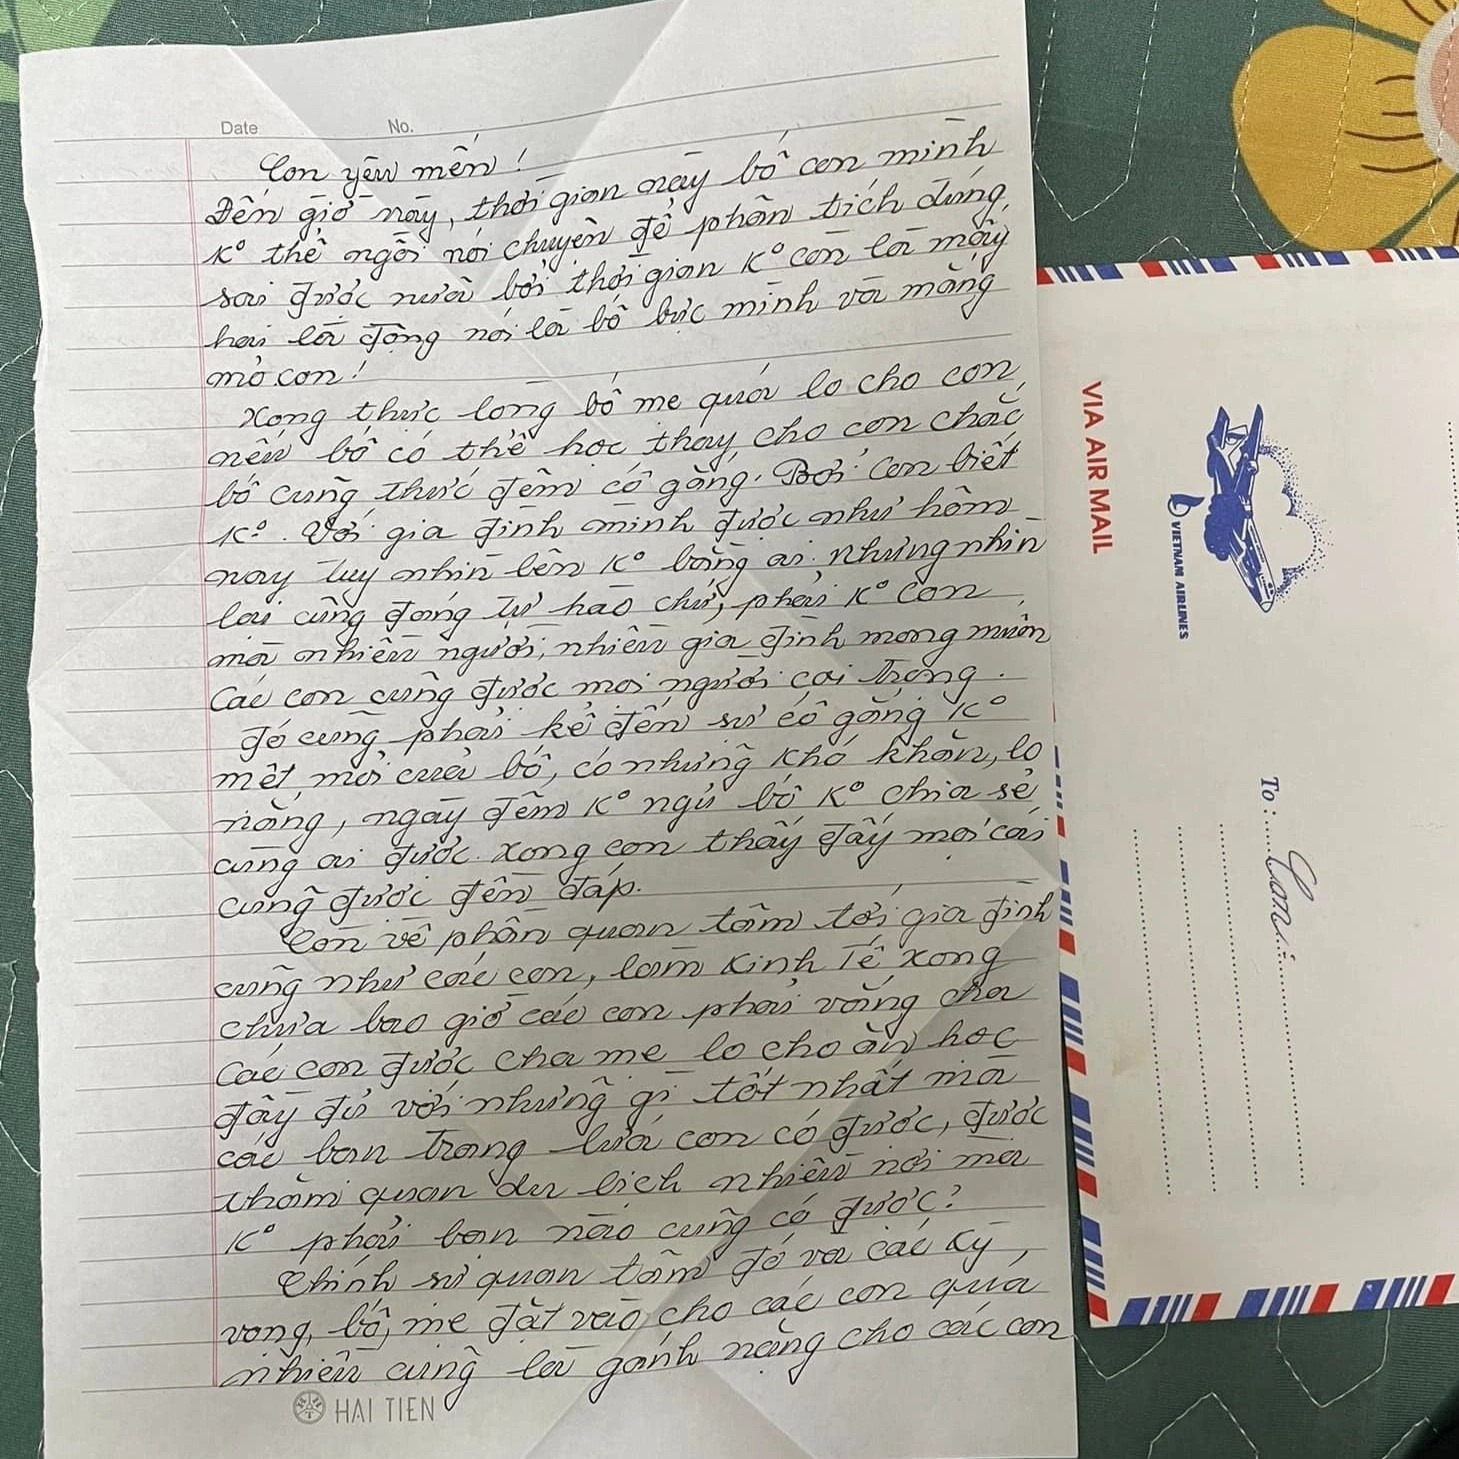 Date No.
Con yêu mến!
Đến giờ này, thời gian này bố con mình
K° thể ngồi nói chuyện để phân tích đúng,
sai được nữa bởi thời gian K° còn là mấy
hai là động nói là bố bực mình và mắng
mỏ con!
Xong thực lòng bố mẹ quá lo cho con,
nếu bố có thể học thay cho con chắc
bố cũng thức đêm cố gắng. Bởi con biết
K°. Với gia đình mình được như hôm
nay tuy nhìn lên K° bằng ai. Nhưng nhìn
lại cũng đáng tự hào chứ, phải K° con
mà nhiều người, nhiều gia đình mong muốn
Các con cũng được mọi người coi trọng.
đó cũng phải kể đến sự cố gắng K°
mệt mỏi của bố, có những khó khăn, lo
nắng, ngày đêm K° ngủ bố K° chia sẻ
cùng ai được. xong con thấy đấy mọi cái
cũng được đền đáp.
Còn về phần quan tâm tới gia đình
cũng như các con, làm Kinh Tế xong
chưa bao giờ các con phải vắng cha
Các con được cha mẹ lo cho ăn học
đầy đủ với những gì tốt nhất mà
các bạn trang lứa con có được, được
thăm quan du lịch nhiều nơi mà
K° phải bạn nào cũng có được?
Chính sự quan tâm đó và các kỳ
vọng, bố, mẹ đặt vào cho các con quá
nhiều cũng là gánh nặng cho các con
HAI TIEN
VIA AIR MAIL
VIETNAM AIRLINES
To: Con: